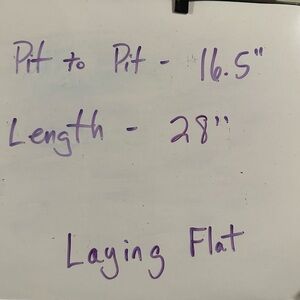 Pit to Pit - 16.5"
Length - 28"
Laying Flat